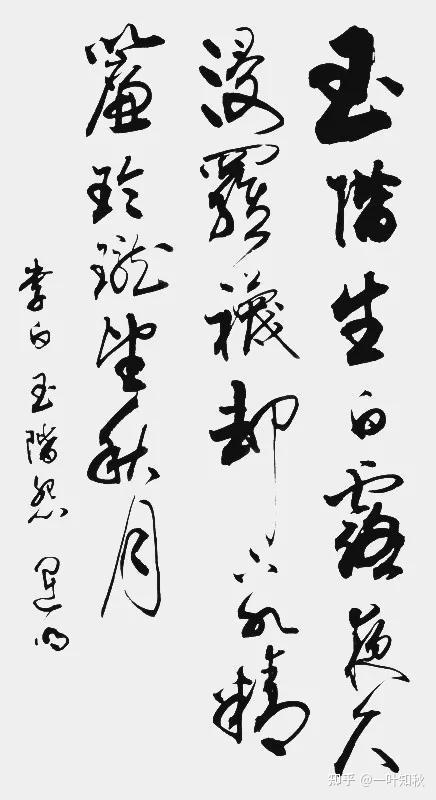 玉階生白露夜久
浸羅襪却下水精
簾玲瓏望秋月
李白玉階怨
知乎 @一叶知秋